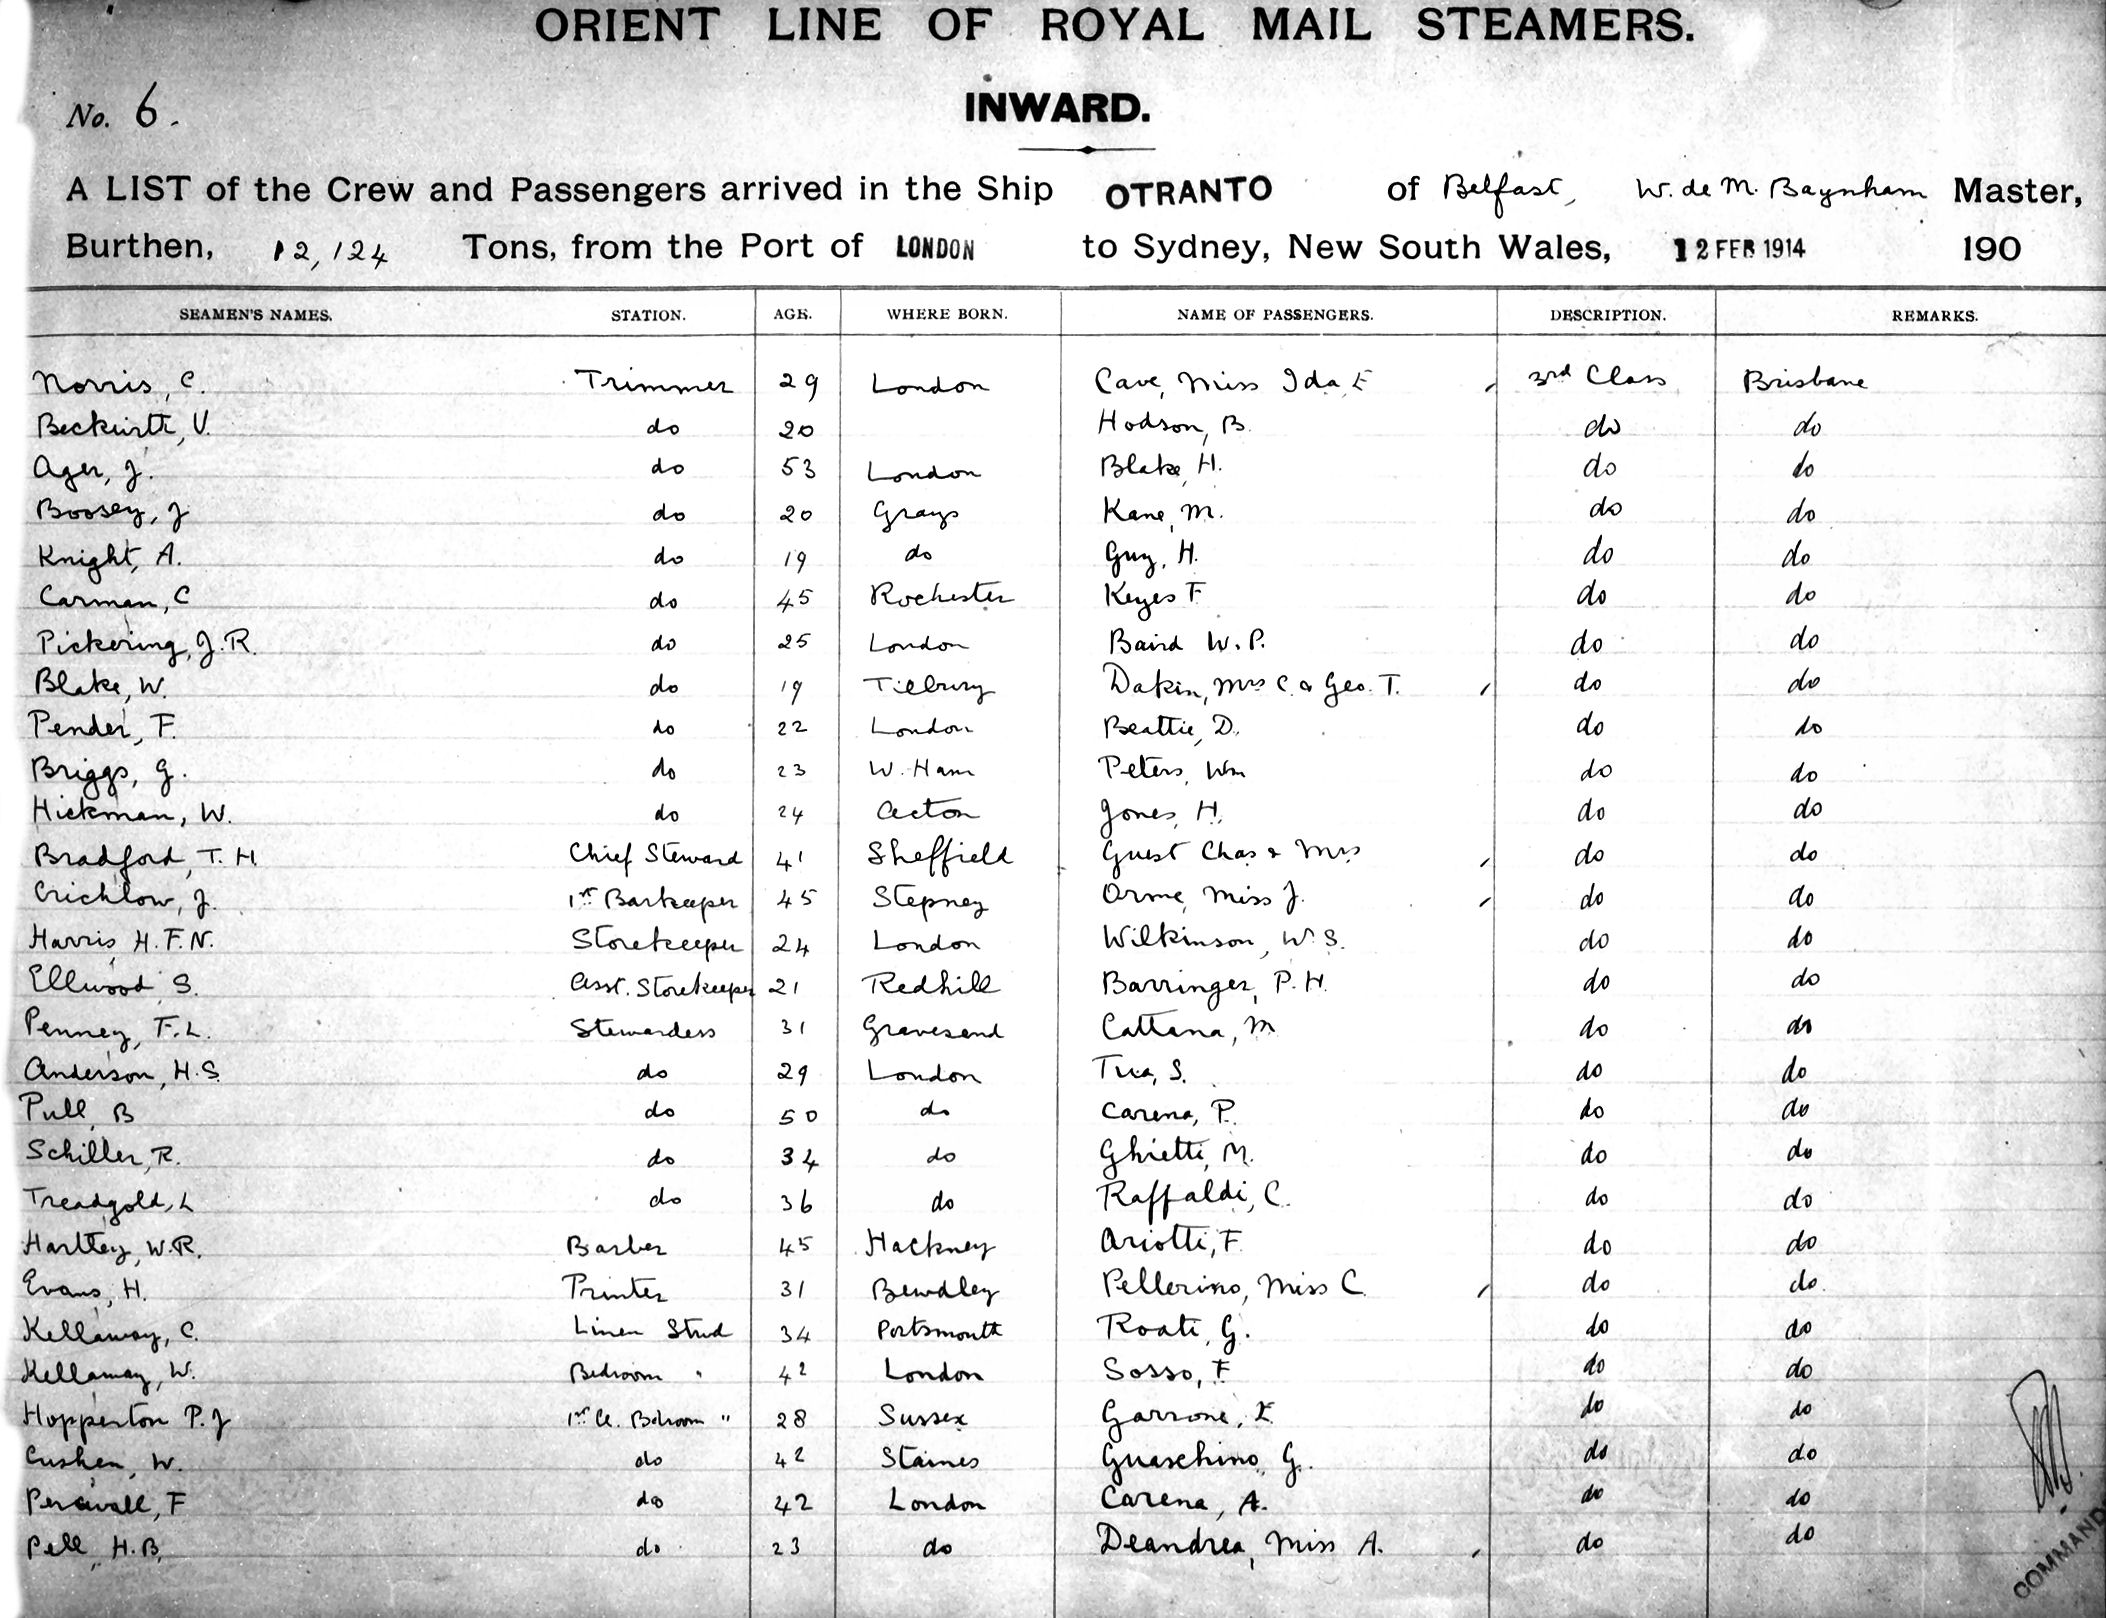 ORIENT LINE OF ROYAL MAIL STEAMERS.
INWARD.
No. 6.
A LIST of the Crew and Passengers arrived in the Ship OTRANTO of Belfast, W. de M. Baynham Master,
Burthen, 12,124 Tons, from the Port of LONDON to Sydney, New South Wales, 12 FEB 1914 190
SEAMEN'S NAMES. STATION. AGE. WHERE BORN. NAME OF PASSENGERS. DESCRIPTION. REMARKS.
Norris, C. Trimmer 29 London Cave, Miss Ida E 3rd Class Brisbane
V. do 20 Hodson, B. do do
Ager, J. do 53 London Blake, H. do do
Boosey, J do 20 Grays Kane, M. do do
Knight, A. do 19 do Guy, H. do do
Carman, C do 45 Rochester Keyes F do do
Pickering, J.R. do 25 London Baird W.P. do do
Blake, W. do 19 Tilbury Dakin, Mrs C. & Geo. T. do do
Pender, F. do 22 London Beattie, D. do do
Briggs, G. do 23 W. Ham Peters, Wm do do
Hickman, W. do 24 Acton Jones, H. do do
Bradford, T. H. Chief Steward 41 Sheffield Guest Chas & Mrs do do
Crichlow, J. 1st Barkeeper 45 Stepney Orme, Miss J. do do
Harris, H.F.N. Storekeeper 24 London Wilkinson, W.S. do do
Ellwood, S. Asst. Storekeeper 21 Redhill Barringer, P.H. do do
Penney, F.L. Stewardess 31 Gravesend Cattana, M do do
Anderson, H.S. do 29 London Tua, S. do do
Pull, B do 50 do Carena, P. do do
Schiller, R. do 34 do Ghietti, M. do do
Treadgold, L do 36 do Raffaldi, C. do do
Hartley, W.R. Barber 45 Hackney Ariotti, F. do do
Evans, H. Printer 31 Bewdley Pellerino, Miss C. do do
Kellaway, C. Linen Stwd 34 Portsmouth Roati, G. do do
Kellaway, W. Bedroom " 42 London Sosso, F do do
Hopperton P.J 1st Cl. Bdroom " 28 Sussex Garrone, E. do do
Cushen, W. do 42 Staines Guaschino, G. do do
Percivall, F do 42 London Carena, A. do do
Pell, H.B. do 23 do Deandrea, Miss A. do do